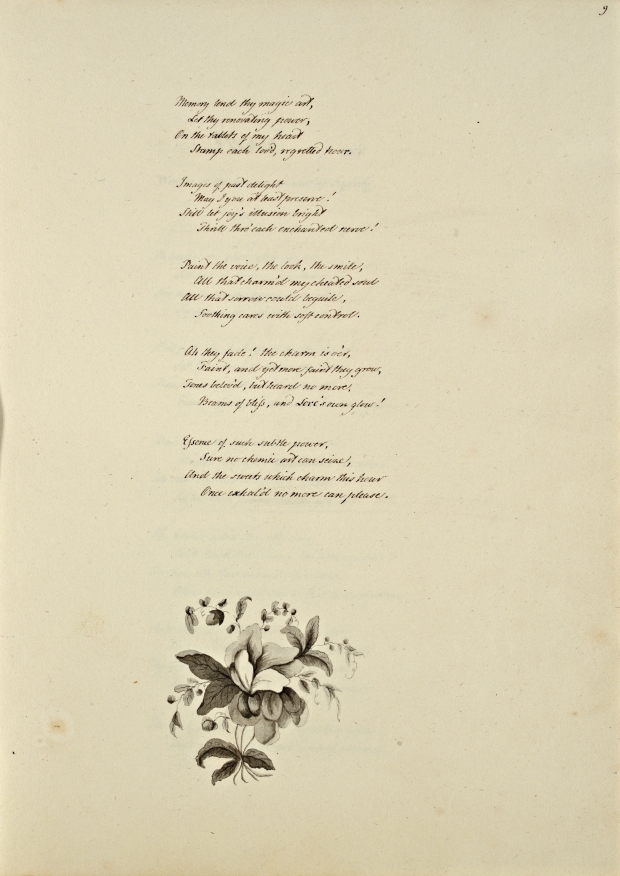 9
Memory lend thy magic art,
Let thy renovating power,
On the tablets of my heart
Stamp each lov'd, regretted hour.
Images of past delight
May I you at least preserve!
Still let joy's illusion bright
Thrill thro' each enchanted nerve!
Paint the voice, the look, the smile,
All that charm'd my cheated soul
All that sorrow could beguile,
Soothing cares with soft control.
Ah they fade! the charm is o'er,
Faint, and yet more faint they grow,
Tones belov'd, but heard no more,
Beams of bliſs, and Love's own glow!
Eſsence of such subtle power,
Sure no chemic art can seize,
And the sweets which charm this hour
Once exhal'd no more can please.